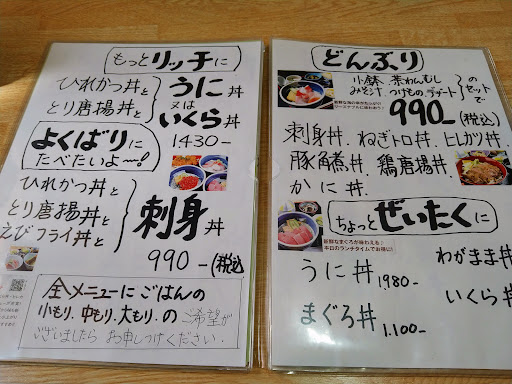 もっとリッチに
ひれかつ丼と
とり唐揚丼と
うに丼
又は
いくら丼
1430-
よくばりに
たべたいよ〜!
ひれかつ丼と
とり唐揚丼と
えびフライ丼と
刺身丼
990-(税込)
全メニューにごはんの
小もり、中もり、大もり、の ご希望が
ございましたら お申しつけください.
どんぶり
小鉢 茶わんむし
みそ汁、つけもの デザート
のセットで
990-(税込)
刺身丼、ねぎトロ丼、ヒレカツ丼、
豚角煮丼、鶏唐揚丼、
かに丼.
ちょっとぜいたくに
新鮮なまぐろが味わえる♪
本日のランチタイムでお得に!
うに丼 1980-
わがまま丼
いくら丼
まぐろ丼 1.100-